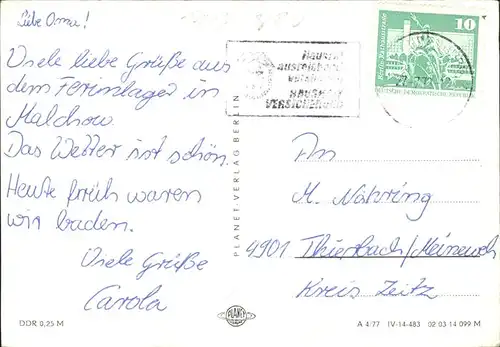 Liebe Oma!
Viele liebe Grüße aus
dem Ferienlager in
Malchow.
Das Wetter ist schön.
Heute früh waren
wir baden.
Viele Grüße
Carola
DDR 0,25 M
PLANET-VERLAG BERLIN
HAUSRAT
VERSICHERUNG
10
DEUTSCHE DEMOKRATISCHE REPUBLIK
An
M. Nähring
4901 Thierbach/Meineweh
Kreis Zeitz
PLANET
A 4/77 IV-14-483 02 03 14 099 M